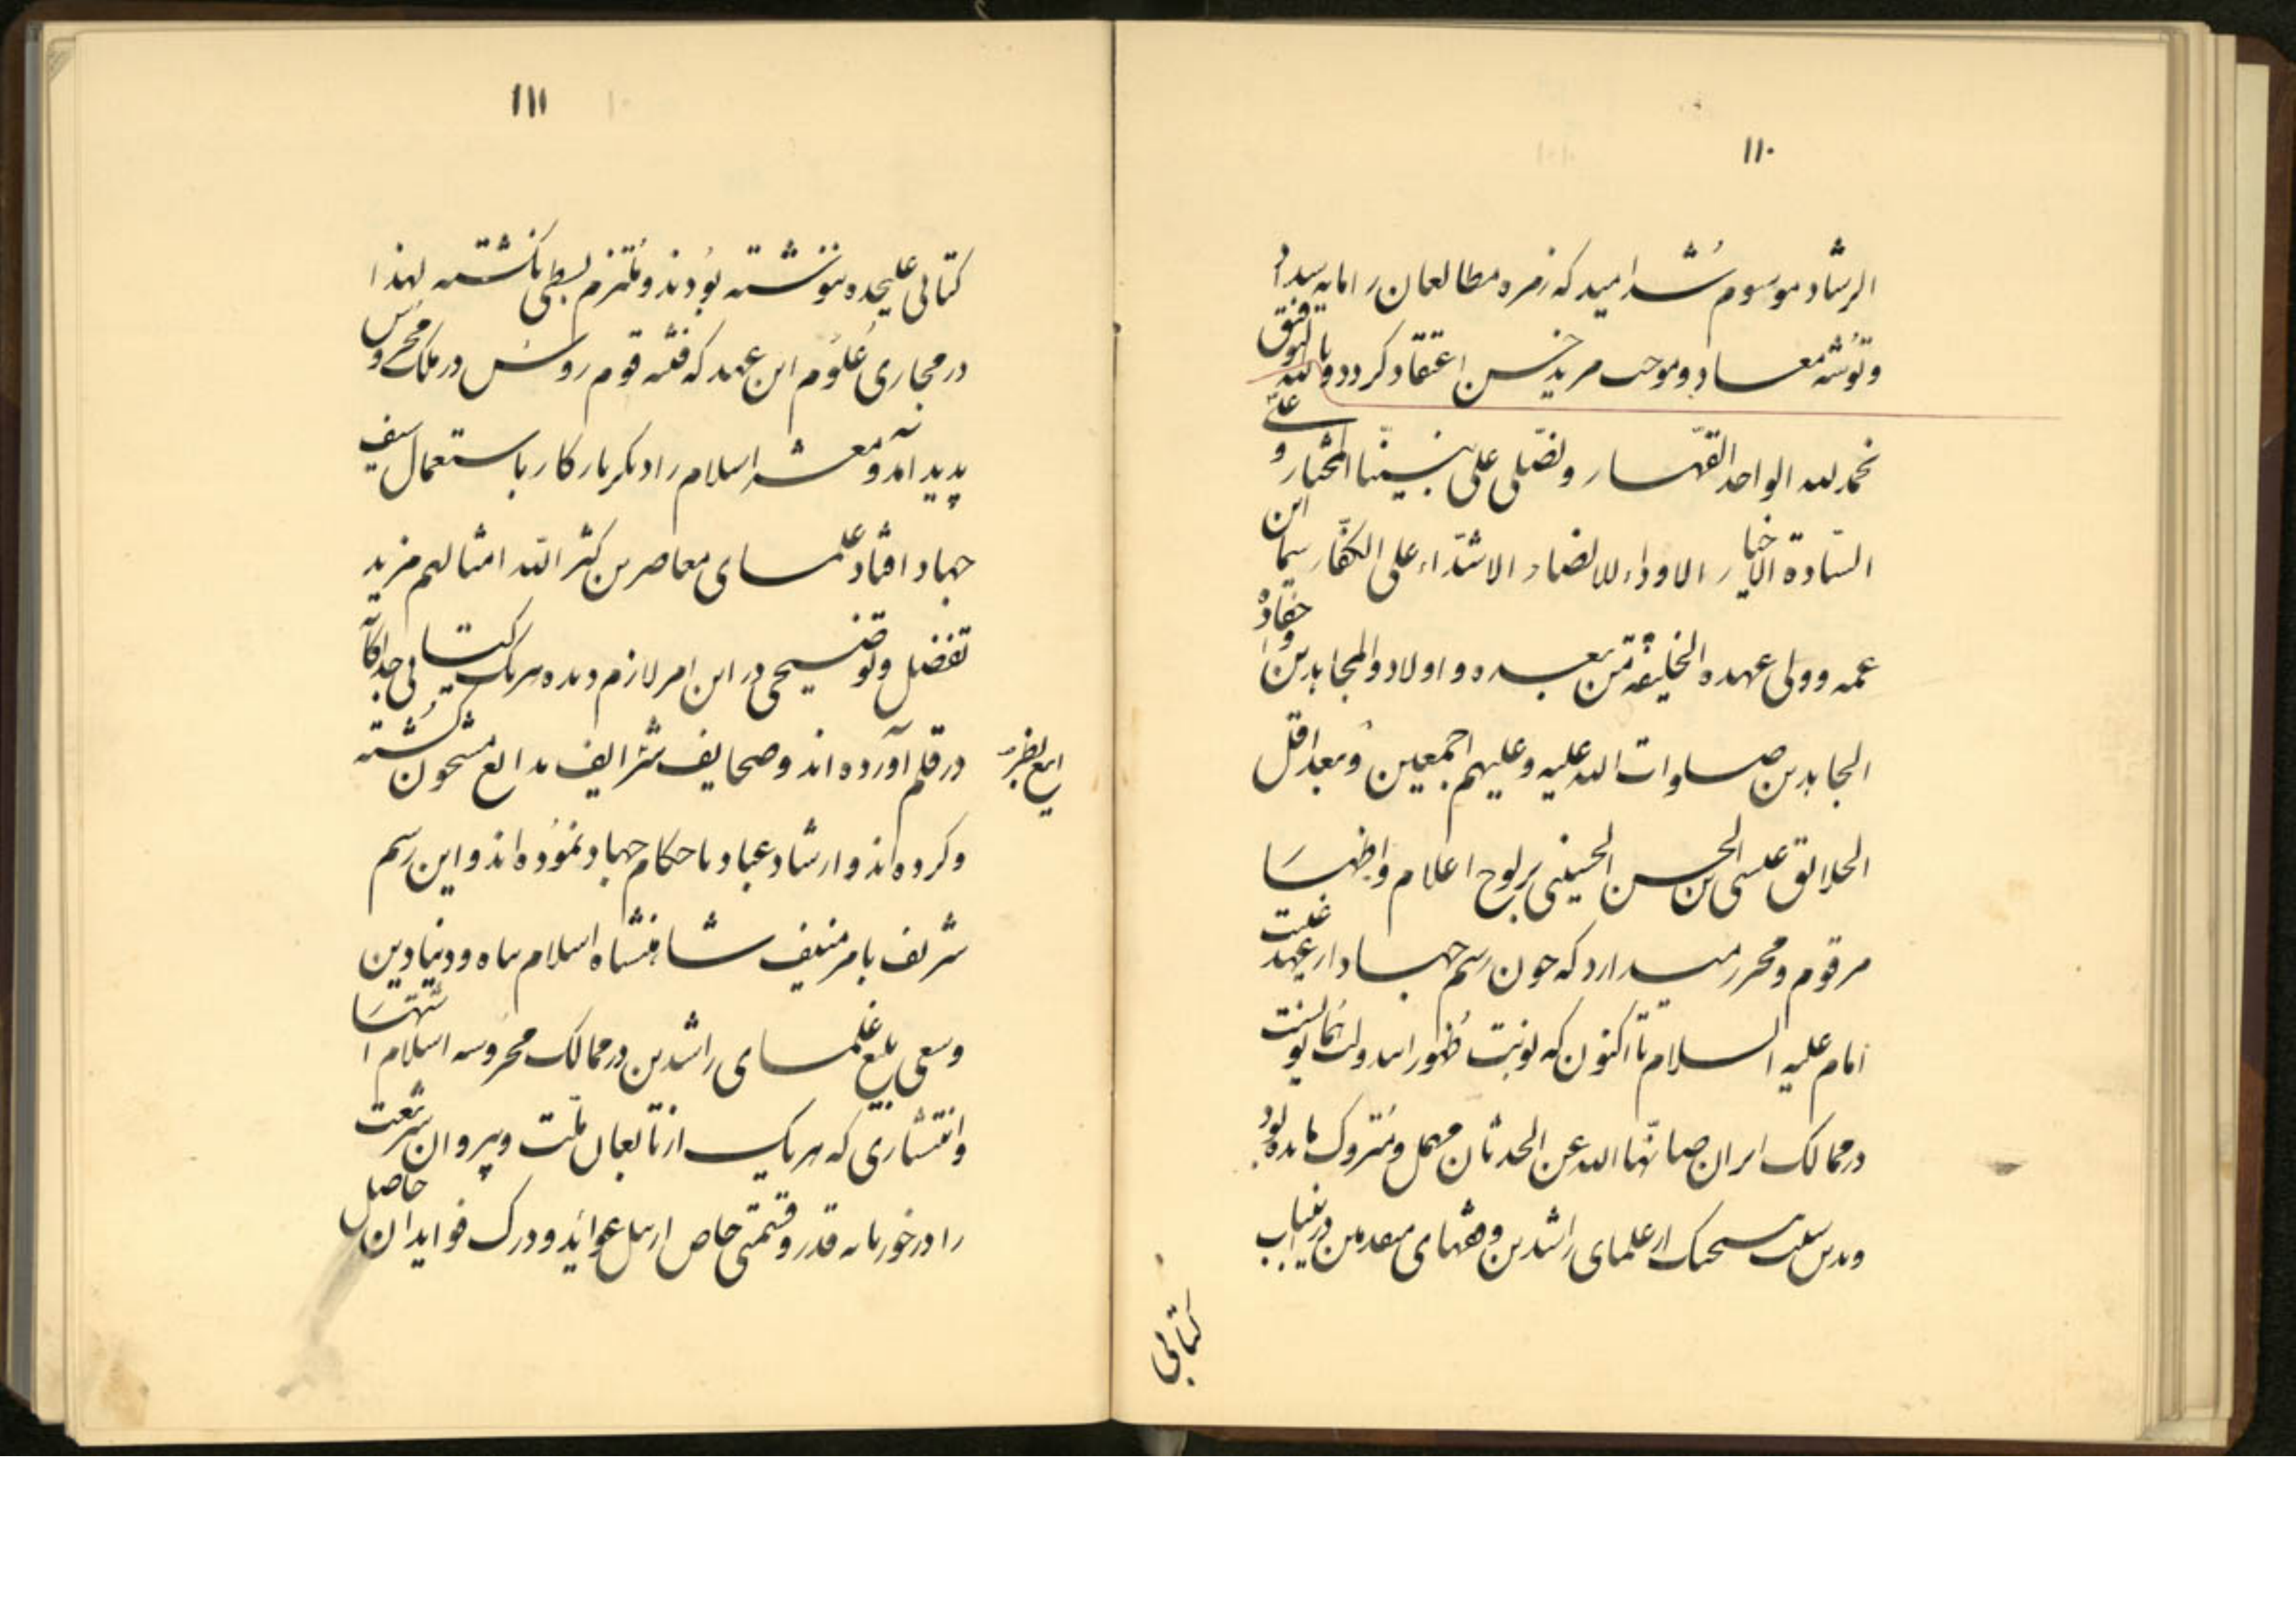 ۱۱۰
الرشاد موسوم شد امید که زمره مطالعان را مایه سداد
و توشه معاد و موجب مزید حسن اعتقاد گردد و بالله التوفیق
نحمد لله الواحد القهار و نصلی علی نبینا المختار و علی
السادة الاخیار الاوداء للانصار الاشداء علی الکفار سیما ابن
عمه و ولی عهده الخلیفة من بعده و اولاد والمجاهدین و احفاده
الجاهدین صلوات الله علیه و علیهم اجمعین و بعد اقل
الخلایق عیسی بن الحسن الحسینی بر لوح اعلام و اظهار
مرقوم و محرر میدارد که چون رسم جهاد از عهد غیبت
امام علیه السلام تا اکنون که نوبت ظهور این دولت
در ممالک ایران صانها الله عن الحدثان مهمل و متروک مانده بود
و بدین سبب هیچیک از علمای راشدین و فقهای متقدمین در این باب
کتابی
۱۱۱
کتابی علیحده ننوشته بودند و ملتزم بسطی نگشته لهذا
در مجاری علوم این عهد که فتنه قوم روس در ملک محروس
پدید آمد و معشر اسلام را دیگر بار کار با استعمال سیف
جهاد افتاد علمای معاصرین کثر الله امثالهم مزید
تفضیل و توضیحی در این امر لازم دیده هر یک کتابی جداگانه
در قلم آورده اند و صحایف شرایف بدایع مشحون گشته
و کرده اند و ارشاد عباد باحکام جهاد نموده اند و این رسم
شریف بامر منیف شاهنشاه اسلام پناه و دنیا و دین
و سعی بلیغ علمای راشدین در ممالک محروسه اسلام اشتهار
و انتشاری که هر یک از تابعان ملت و پیروان شریعت
را در خور پایه قدر و قسمتی خاص از نیل عواید و درک فواید آن حاصل